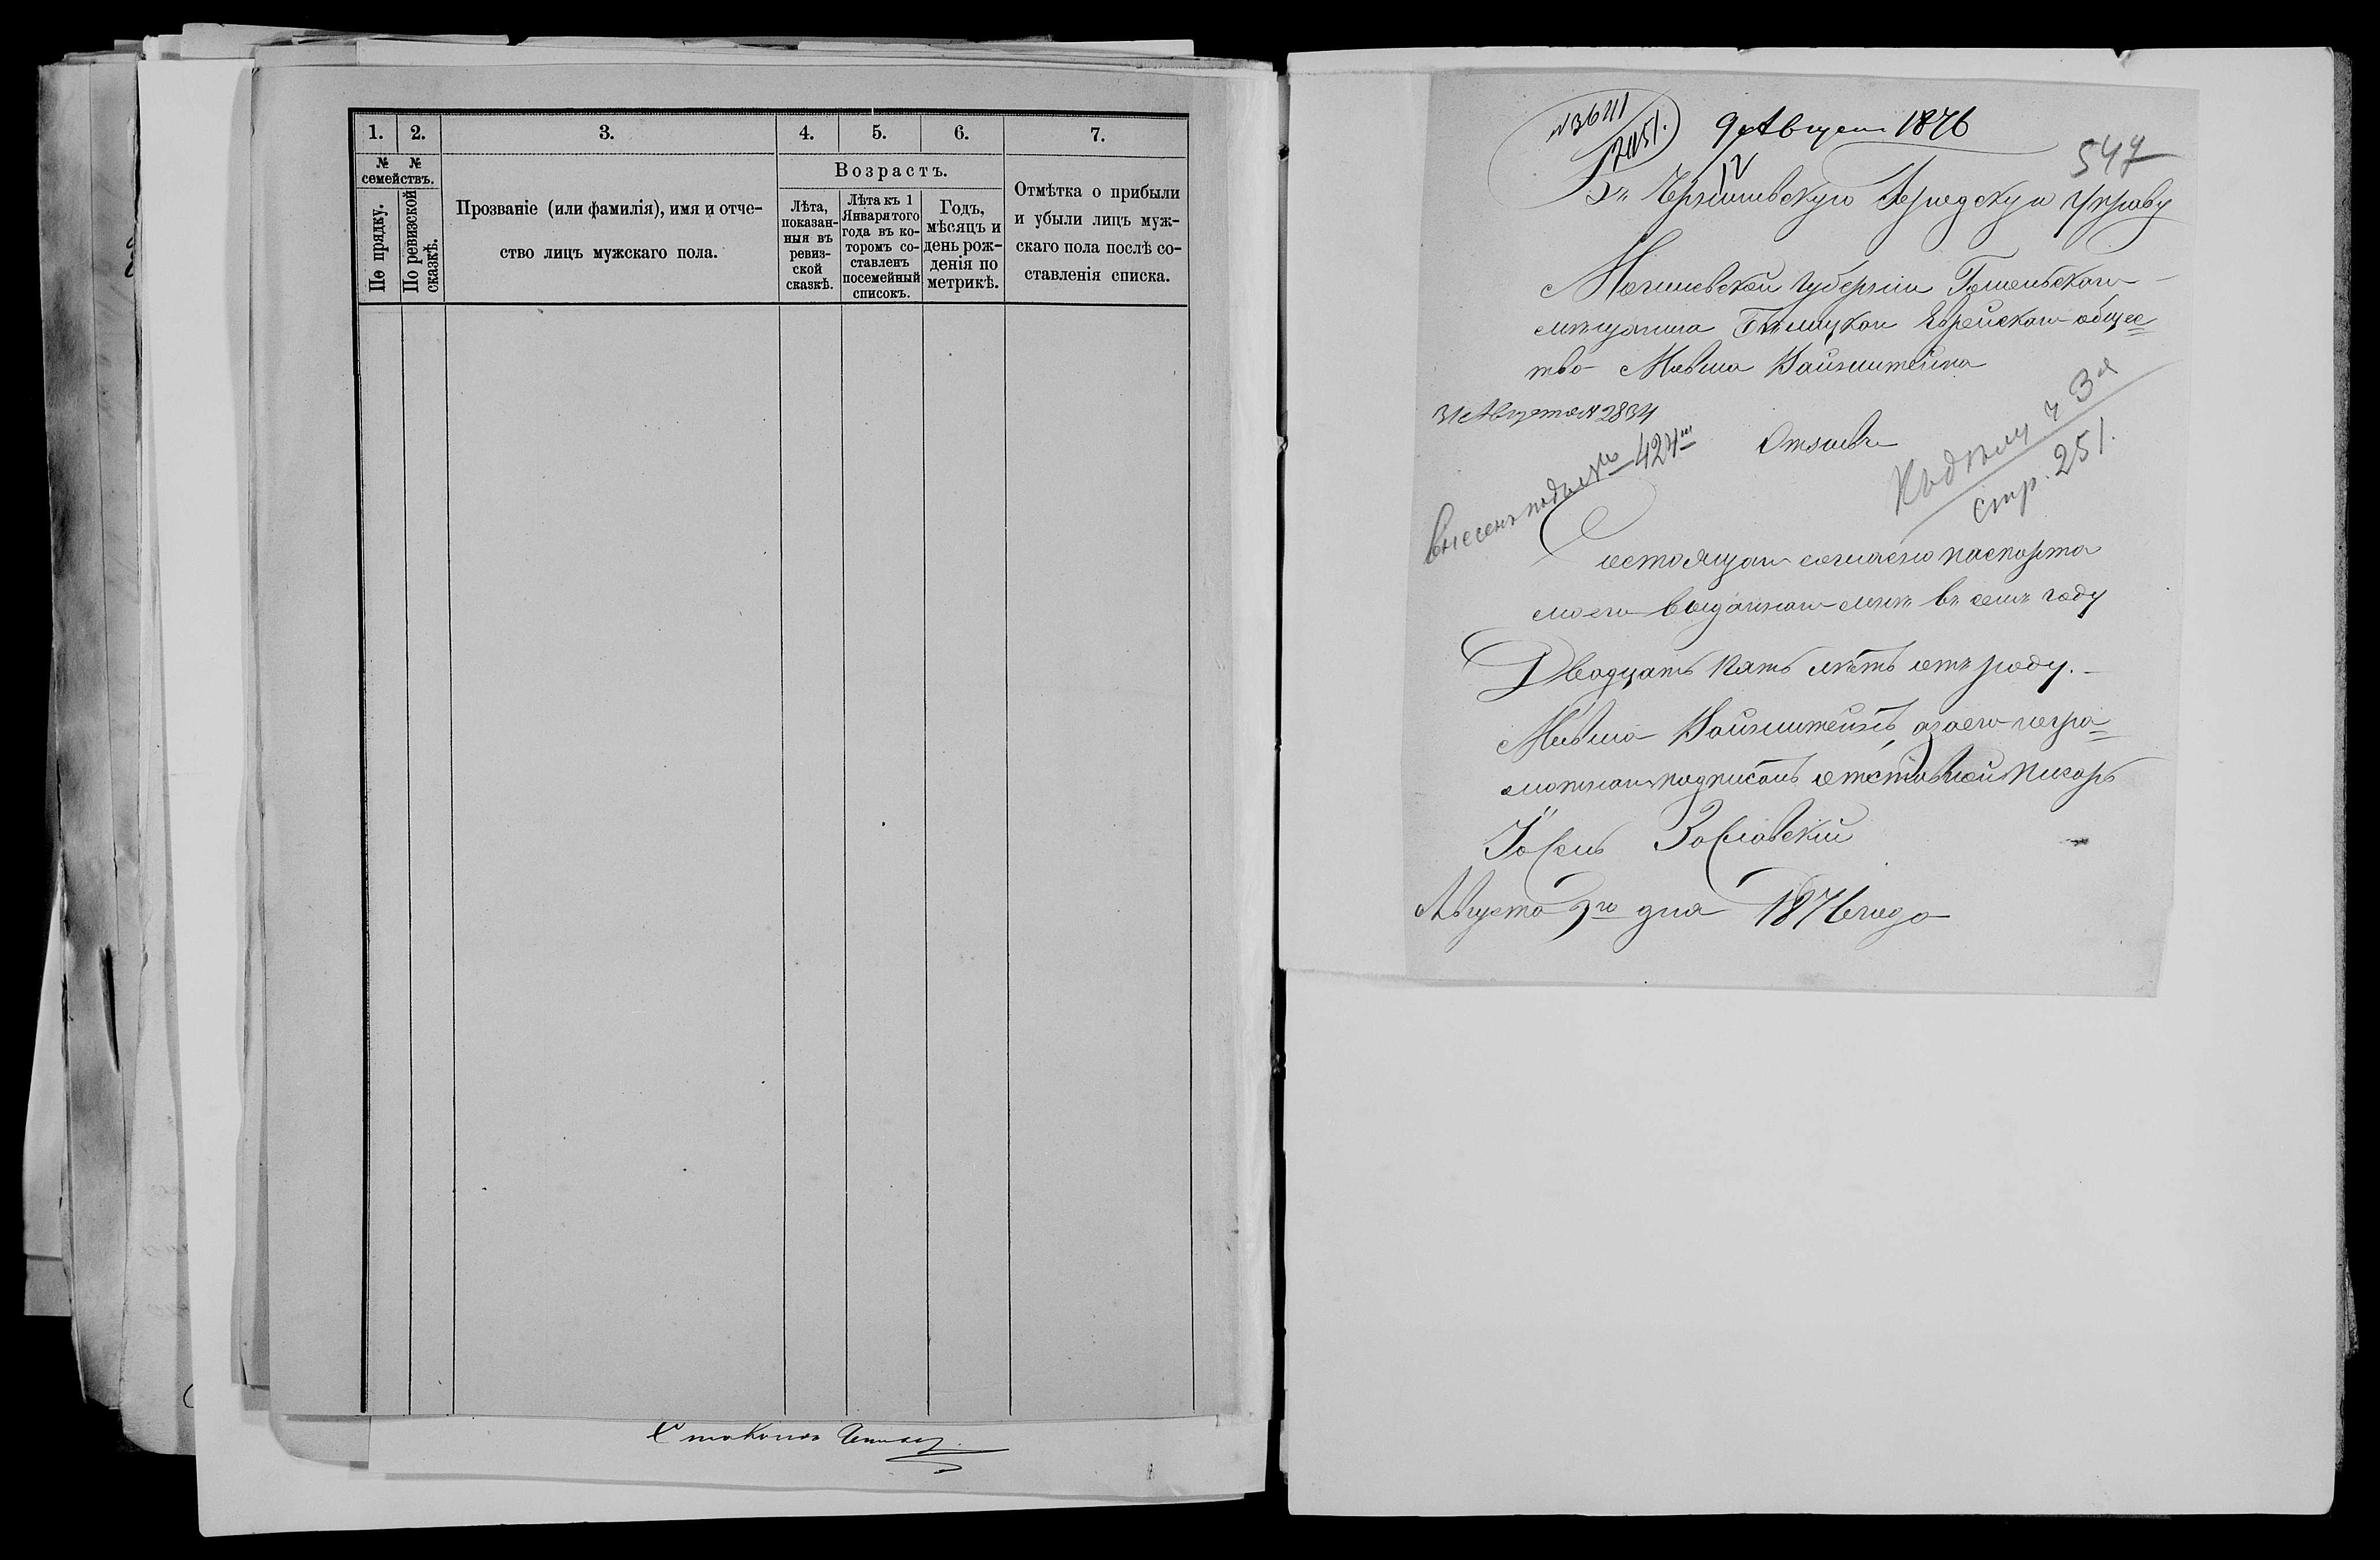 1. 2. 3. 4. 5. 6. 7.
№ № семействъ.
По прядку.
По ревизской сказкѣ.
Прозваніе (или фамилія), имя и отче-
ство лицъ мужскаго пола.
Возрастъ.
Лѣта,
показан-
ныя въ
ревиз-
ской
сказкѣ.
Лѣта къ 1
Января того
года въ ко-
торомъ со-
ставленъ
посемейный
списокъ.
Годъ,
мѣсяцъ и
день рож-
денія по
метрикѣ.
Отмѣтка о прибыли
и убыли лицъ муж-
скаго пола послѣ со-
ставленія списка.
9 Августа 1876
547
Въ Городскую Управу
Могилевской губерніи Гомельскаго
мѣщанина Еврейскаго общес=
тва Мовша Вайнштейна
31 Августа № 2834
Внесенъ подъ № 424
Отзывъ
Къ дѣлу ч 3я
стр. 251.
Состоящаго согласно паспорта
моего выданнаго мнѣ въ семъ году
Двадцать пять лѣтъ отъ роду.
Мовша Вайнштейнъ, а за его негра=
мотнаго подписалъ отставной писарь
Іосель Заславскій
Августа 9го дня 1876 года